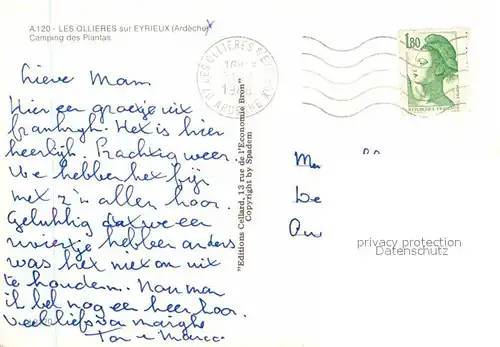 A.120 - LES OLLIERES sur EYRIEUX (Ardèche)
Camping des Plantas
LES OLLIERES S/EY
ARDECHE
1,80
REPUBLIQUE FRANCAISE
Lieve Mam
Hier een groetje uit
frankrijk. Het is hier
heerlijk. Prachtig weer.
We hebben het fijn
met z'n allen hoor.
Gelukkig dat we een
riviertje hebben anders
was het niet om uit
te houden. Nou mam
ik bel nog een keer hoor.
Veel liefs van
"Editions Cellard, 13 rue de l'Economie Bron"
Copyright by Spadem
privacy protection
Datenschutz